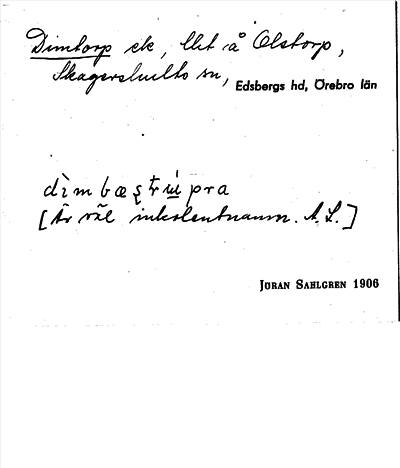 Dimtorp ek, lht å Olstorp,
Skagershults sn, Edsbergs hd, Örebro län
[Är väl inkolentnamn. A.L.]
JÖRAN SAHLGREN 1906